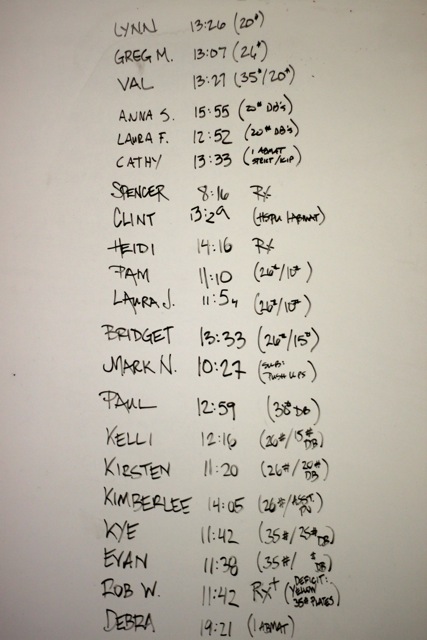 LYNN 13:26 (20#)
GREG M. 13:07 (26#)
VAL 13:27 (35#/20#)
ANNA S. 15:55 (20# DB'S)
LAURA F. 12:52 (20# DB'S)
CATHY 13:33 (1 ABMAT STRICT/KIP)
SPENCER 8:16 Rx
CLINT 13:29 (HSPU 1 ABMAT)
HEIDI 14:16 Rx
PAM 11:10 (26#/10#)
LAURA J. 11:54 (26#/10#)
BRIDGET 13:33 (26#/15#)
MARK N. 10:27 (SUB: PUSH UPS)
PAUL 12:59 (DB)
KELLI 12:16 (26#/15# DB)
KIRSTEN 11:20 (26#/20# DB)
KIMBERLEE 14:05 (26#/ASST.
KYE 11:42 (35#/25# DB)
EVAN 11:38 (35#/ # DB)
ROB W. 11:42 Rx+ (DEFICIT: YELLOW 35# PLATES)
DEBRA 19:21 (1 ABMAT)